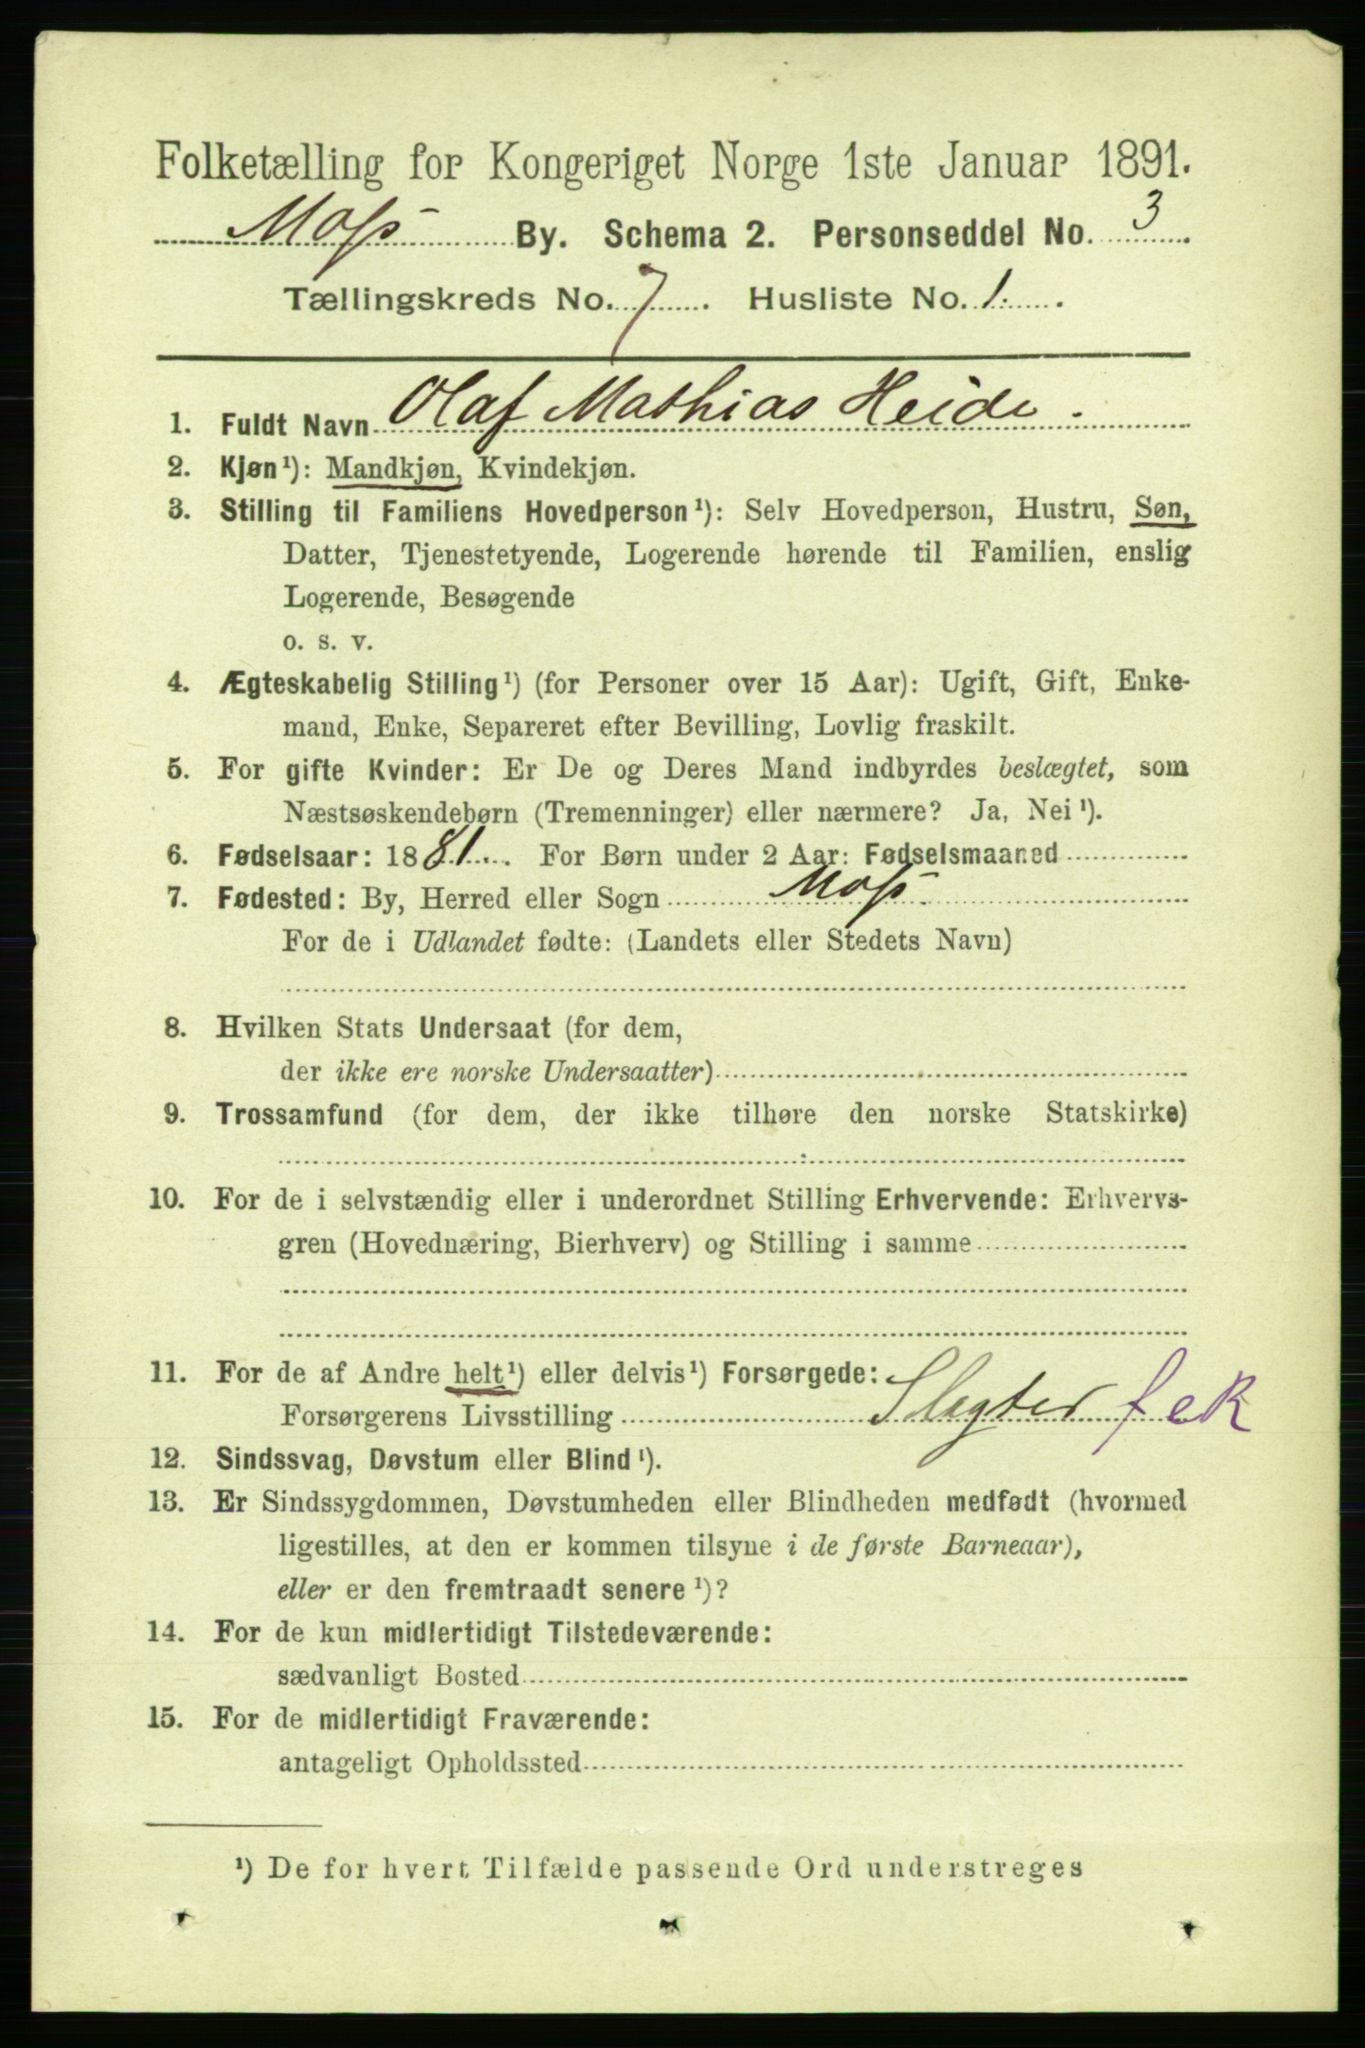 Folketælling for Kongeriget Norge 1ste Januar 1891.
Moss By. Schema 2. Personseddel No. 3
Tællingskreds No. 7. Husliste No. 1.
1. Fuldt Navn Olaf Mathias Heide.
2. Kjøn¹): Mandkjøn, Kvindekjøn.
3. Stilling til Familiens Hovedperson¹): Selv Hovedperson, Hustru, Søn,
Datter, Tjenestetyende, Logerende hørende til Familien, enslig
Logerende, Besøgende
o. s. v.
4. Ægteskabelig Stilling¹) (for Personer over 15 Aar): Ugift, Gift, Enke-
mand, Enke, Separeret efter Bevilling, Lovlig fraskilt.
5. For gifte Kvinder: Er De og Deres Mand indbyrdes beslægtet, som
Næstsøskendebørn (Tremenninger) eller nærmere? Ja, Nei¹).
6. Fødselsaar: 1881. For Børn under 2 Aar: Fødselsmaaned
7. Fødested: By, Herred eller Sogn Moss.
For de i Udlandet fødte: (Landets eller Stedets Navn)
8. Hvilken Stats Undersaat (for dem,
der ikke ere norske Undersaatter)
9. Trossamfund (for dem, der ikke tilhøre den norske Statskirke)
10. For de i selvstændig eller i underordnet Stilling Erhvervende: Erhvervs-
gren (Hovednæring, Bierhverv) og Stilling i samme
11. For de af Andre helt¹) eller delvis¹) Forsørgede:
Forsørgerens Livsstilling Slagter feR
12. Sindssvag, Døvstum eller Blind¹).
13. Er Sindssygdommen, Døvstumheden eller Blindheden medfødt (hvormed
ligestilles, at den er kommen tilsyne i de første Barneaar),
eller er den fremtraadt senere¹)?
14. For de kun midlertidigt Tilstedeværende:
sædvanligt Bosted
15. For de midlertidigt Fraværende:
antageligt Opholdssted
¹) De for hvert Tilfælde passende Ord understreges